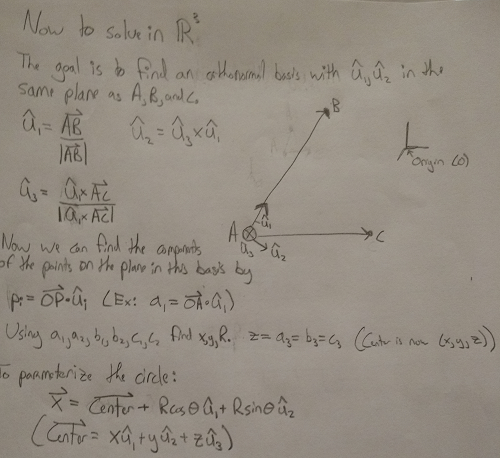 Now to solve in ℝ³
The goal is to find an orthonormal basis with û₁, û₂ in the
same plane as A, B, and C.
û₁ = AB⃗ / |AB⃗|   û₂ = û₃ × û₁
û₃ = û₁ × AC⃗ / |û₁ × AC⃗|
B
Origin (O)
A
û₁
û₃
û₂
C
Now we can find the components
of the points on the plane in this basis by
pᵢ = OP⃗ · ûᵢ (Ex: a₁ = OA⃗ · û₁)
Using a₁, a₂, b₁, b₂, c₁, c₂ find x, y, R. z = a₃ = b₃ = c₃ (Center is now (x, y, z))
To parameterize the circle:
X⃗ = Center⃗ + Rcosθ û₁ + Rsinθ û₂
(Center⃗ = xû₁ + yû₂ + zû₃)